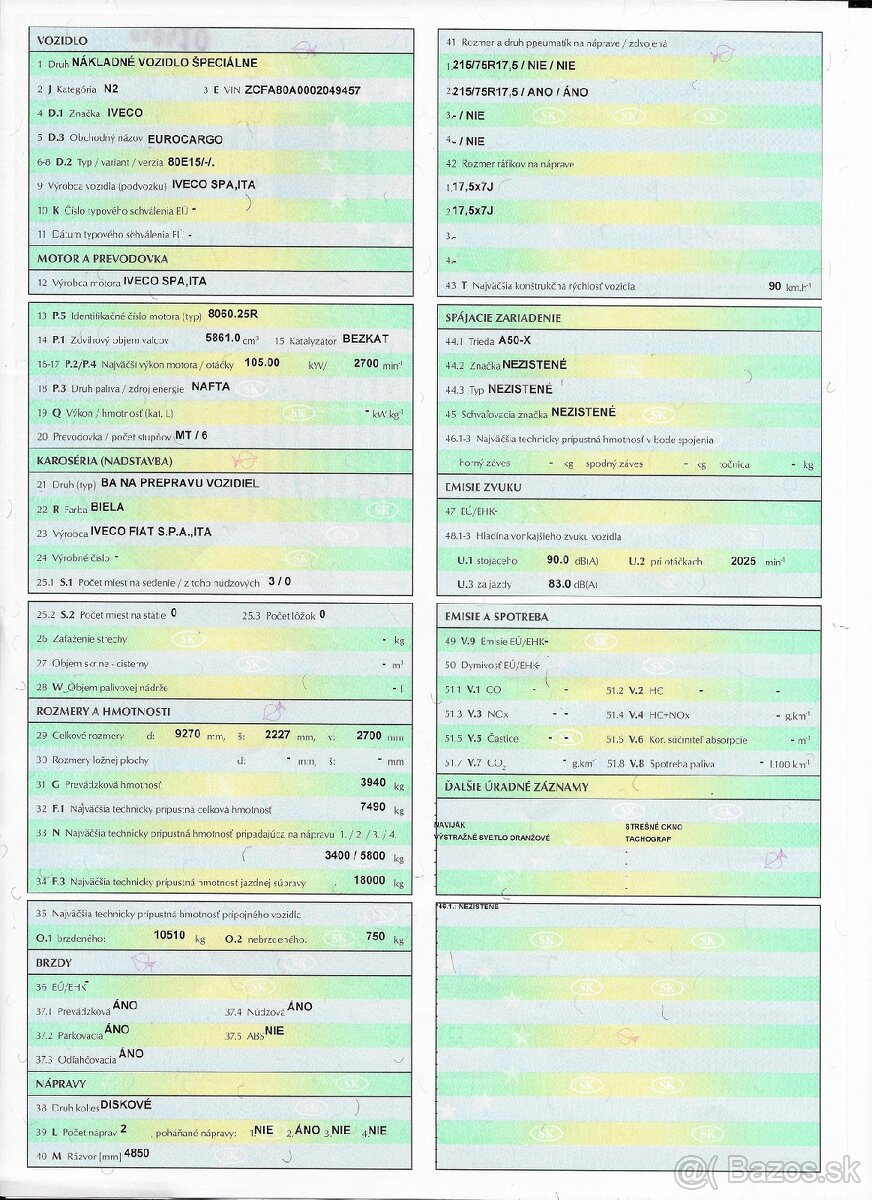 VOZIDLO
1 Druh NÁKLADNÉ VOZIDLO ŠPECIÁLNE
2 J Kategória N2 3 E VIN ZCFA80A0002049457
4 D.1 Značka IVECO
5 D.3 Obchodný názov EUROCARGO
6-8 D.2 Typ / variant / verzia 80E15/-/.
9 Výrobca vozidla (podvozku) IVECO SPA,ITA
10 K Číslo typového schválenia EÚ -
11 Dátum typového schválenia EÚ -
MOTOR A PREVODOVKA
12 Výrobca motora IVECO SPA,ITA
13 P.5 Identifikačné číslo motora (typ) 8060.25R
14 P.1 Zdvihový objem valcov 5861.0 cm³ 15 Katalyzátor BEZKAT
16-17 P.2/P.4 Najväčší výkon motora / otáčky 105.00 kW/ 2700 min⁻¹
18 P.3 Druh paliva / zdroj energie NAFTA
19 Q Výkon / hmotnosť (kat. L) - kW.kg⁻¹
20 Prevodovka / počet stupňov MT / 6
KAROSÉRIA (NADSTAVBA)
21 Druh (typ) BA NA PREPRAVU VOZIDIEL
22 R Farba BIELA
23 Výrobca IVECO FIAT S.P.A.,ITA
24 Výrobné číslo -
25.1 S.1 Počet miest na sedenie / z toho núdzových 3 / 0
25.2 S.2 Počet miest na státie 0 25.3 Počet lôžok 0
26 Zaťaženie strechy - kg
27 Objem skrine - cisterny - m³
28 W Objem palivovej nádrže - l
ROZMERY A HMOTNOSTI
29 Celkové rozmery d: 9270 mm, š: 2227 mm, v: 2700 mm
30 Rozmery ložnej plochy d: - mm, š: - mm
31 G Prevádzková hmotnosť 3940 kg
32 F.1 Najväčšia technicky prípustná celková hmotnosť 7490 kg
33 N Najväčšia technicky prípustná hmotnosť pripadajúca na nápravu 1. / 2. / 3. / 4.
3400 / 5800 kg
34 F.3 Najväčšia technicky prípustná hmotnosť jazdnej súpravy 18000 kg
35 Najväčšia technicky prípustná hmotnosť prípojného vozidla
O.1 brzdeného: 10510 kg O.2 nebrzdeného: 750 kg
BRZDY
36 EÚ/EHK -
37.1 Prevádzková ÁNO 37.4 Núdzová ÁNO
37.2 Parkovacia ÁNO 37.5 ABS NIE
37.3 Odľahčovacia ÁNO
NÁPRAVY
38 Druh kolies DISKOVÉ
39 L Počet náprav 2 , poháňané nápravy: 1. NIE 2. ÁNO 3. NIE 4. NIE
40 M Rázvor [mm] 4850
41 Rozmer a druh pneumatík na náprave / zdvojená
1. 215/75R17,5 / NIE / NIE
2. 215/75R17,5 / ÁNO / ÁNO
3.- / NIE
4.- / NIE
42 Rozmer ráfikov na náprave
1. 17,5x7J
2 17,5x7J
3.-
4.-
43 T Najväčšia konštrukčná rýchlosť vozidla 90 km.h⁻¹
SPÁJACIE ZARIADENIE
44.1 Trieda A50-X
44.2 Značka NEZISTENÉ
44.3 Typ NEZISTENÉ
45 Schvaľovacia značka NEZISTENÉ
46.1-3 Najväčšia technicky prípustná hmotnosť v bode spojenia
horný záves - kg spodný záves - kg točnica - kg
EMISIE ZVUKU
47 EÚ/EHK-
48.1-3 Hladina vonkajšieho zvuku vozidla
U.1 stojaceho 90.0 dB(A) U.2 pri otáčkach 2025 min⁻¹
U.3 za jazdy 83.0 dB(A)
EMISIE A SPOTREBA
49 V.9 Emisie EÚ/EHK-
50 Dymivosť EÚ/EHK-
51.1 V.1 CO - - 51.2 V.2 HC - -
51.3 V.3 NOx - - 51.4 V.4 HC+NOx - g.km⁻¹
51.5 V.5 Častice - - 51.6 V.6 Kor. súčiniteľ absorpcie - m⁻¹
51.7 V.7 CO₂ - g.km⁻¹ 51.8 V.8 Spotreba paliva - l.100 km⁻¹
ĎALŠIE ÚRADNÉ ZÁZNAMY
NAVIJÁK STREŠNÉ OKNO
VÝSTRAŽNÉ SVETLO ORANŽOVÉ TACHOGRAF
*46.1.: NEZISTENÉ
@( Bazos.sk